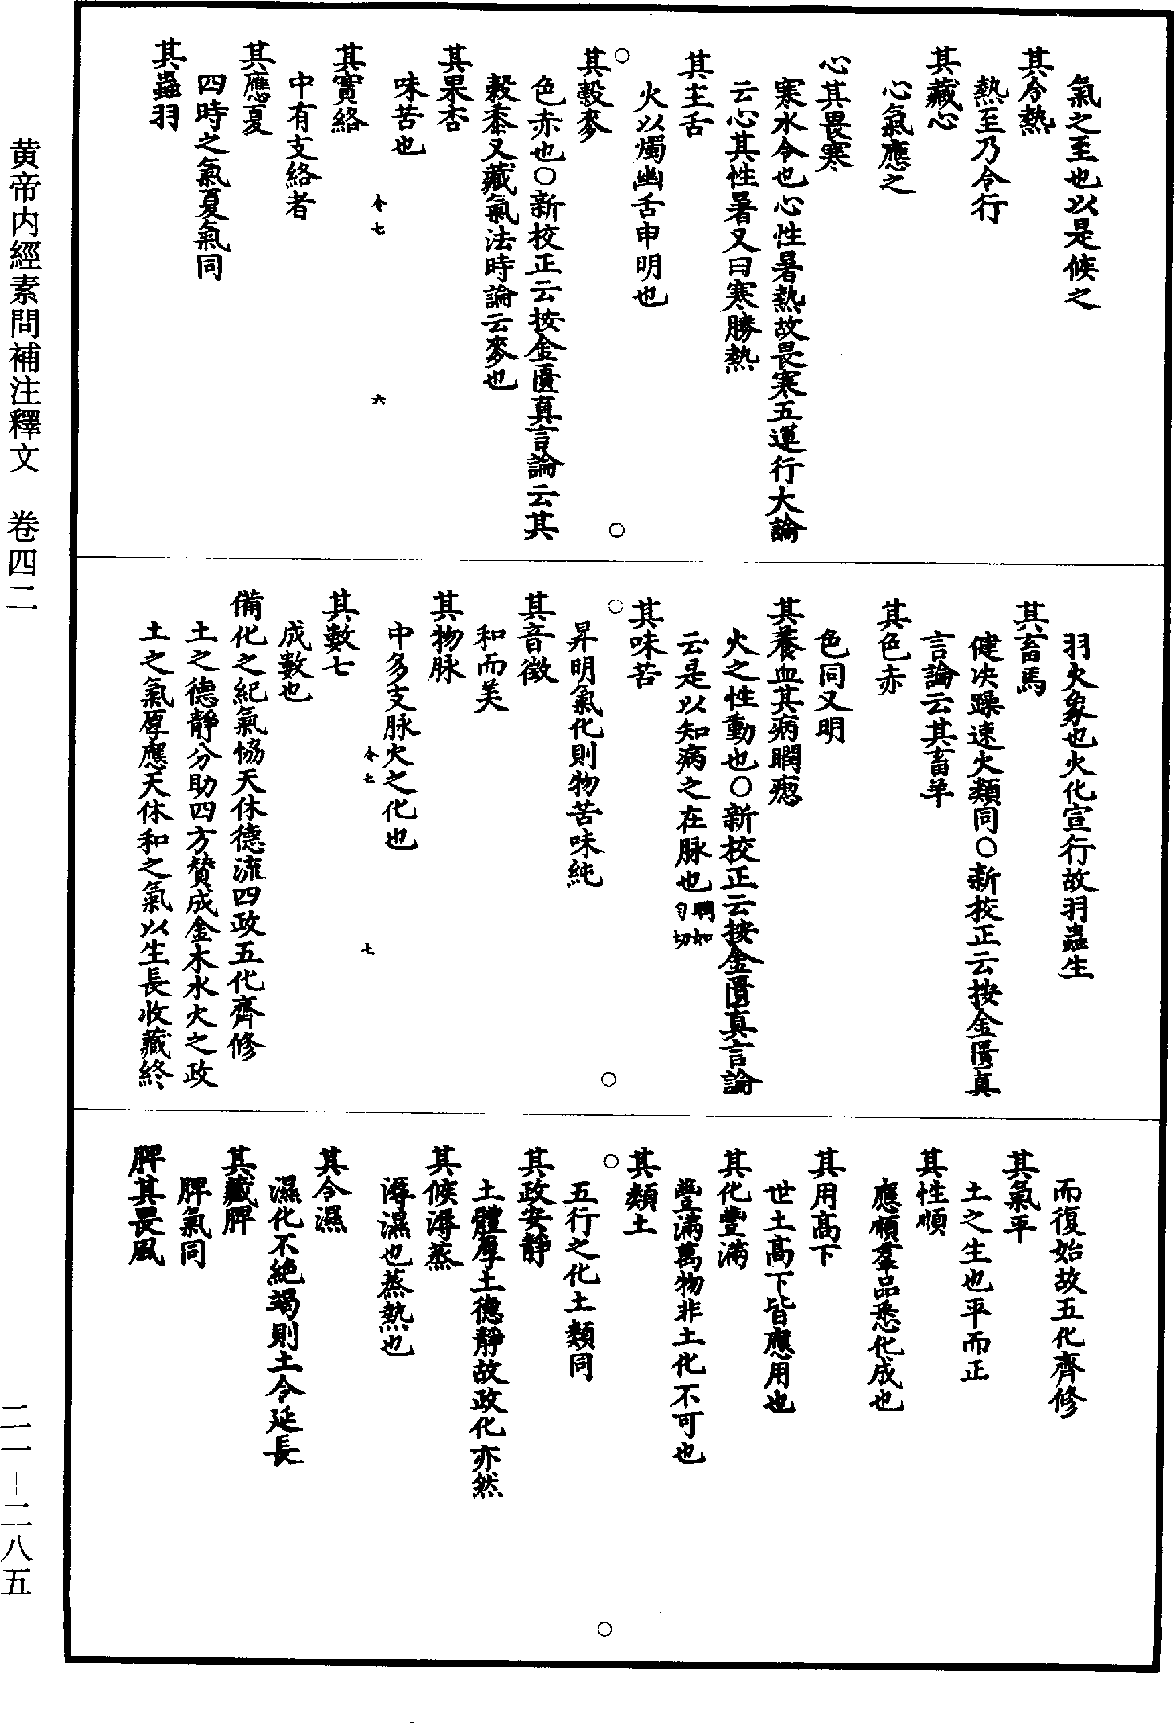 氣之至也以是候之
其令熱
熱至乃令行
其藏心
心氣應之
心其畏寒
寒水令也心性暑熱故畏寒五運行大論
云心其性暑又曰寒勝熱
其主舌
火以燭幽舌申明也
○
○
其穀麥
色赤也○新校正云按金匱真言論云其
穀黍又藏氣法時論云麥也
其果杏
味苦也
令七
六
其實絡
中有支絡者
其應夏
四時之氣夏氣同
其蟲羽
羽火象也火化宣行故羽蟲生
其畜馬
健决躁速火類同○新校正云按金匱真
言論云其畜羊
其色赤
色同又明
其養血其病瞤瘛
火之性動也○新校正云按金匱真言論
云是以知病之在脉也瞤如勻切
其味苦
○
○
昇明氣化則物苦味純
其音徵
和而美
其物脉
中多支脉火之化也
令七
七
其數七
成數也
備化之紀氣恊天休德流四政五化齊修
土之德靜分助四方贊成金木水火之政
土之氣厚應天休和之氣以生長收藏終
而復始故五化齊修
其氣平
土之生也平而正
其性順
應順羣品悉化成也
其用高下
世土高下皆應用也
其化豐滿
豐滿萬物非土化不可也
其類土
○
○
五行之化土類同
其政安靜
土體厚土德靜故政化亦然
其候溽蒸
溽濕也蒸熱也
其令濕
濕化不絶竭則土令延長
其藏脾
脾氣同
脾其畏風
黄帝内經素問補注釋文 卷四二
二一-二八五